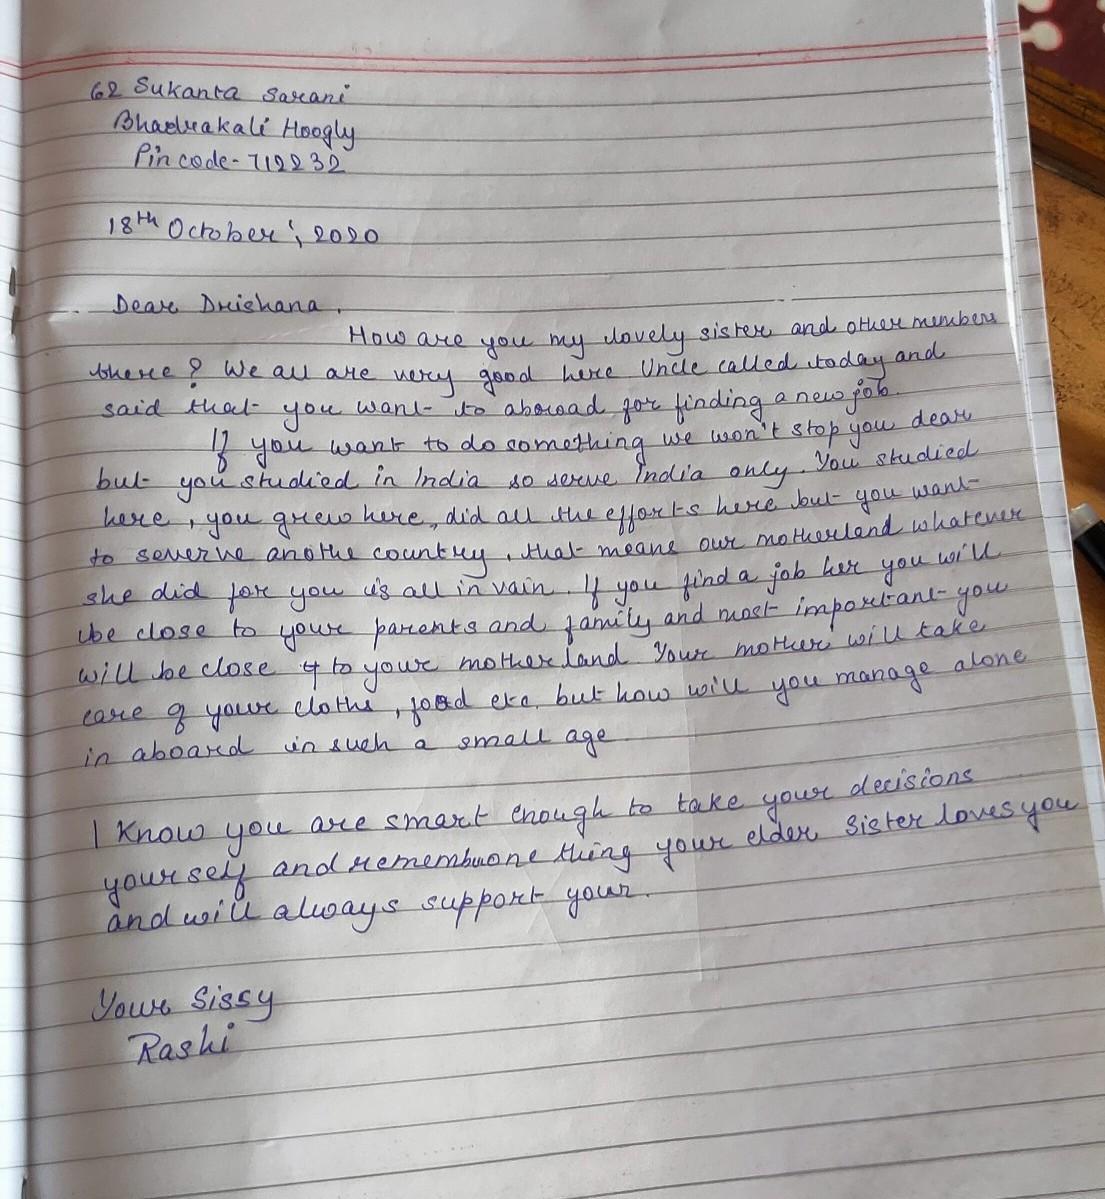 62 Sukanta Sarani
Bhadrakali Hoogly
Pin code - 712232
18th October, 2020
Dear Drishana,
How are you my lovely sister and other members
there? We all are very good here Uncle called today and
said that you want to aboroad for finding a new job.
If you want to do something we won't stop you dear
but you studied in India so serve India only. You studied
here, you grew here, did all the efforts here but you want
to severve anothe country, that means our motherland whatever
she did for you is all in vain. If you find a job her you will
be close to your parents and family and most important you
will be close to your motherland. Your mother will take
care of your cloths, food etc. but how will you manage alone
in aboard in such a small age
I Know you are smart enough to take your decisions
yourself and remember one thing your elder sister loves you
and will always support your.
Your Sissy
Rashi